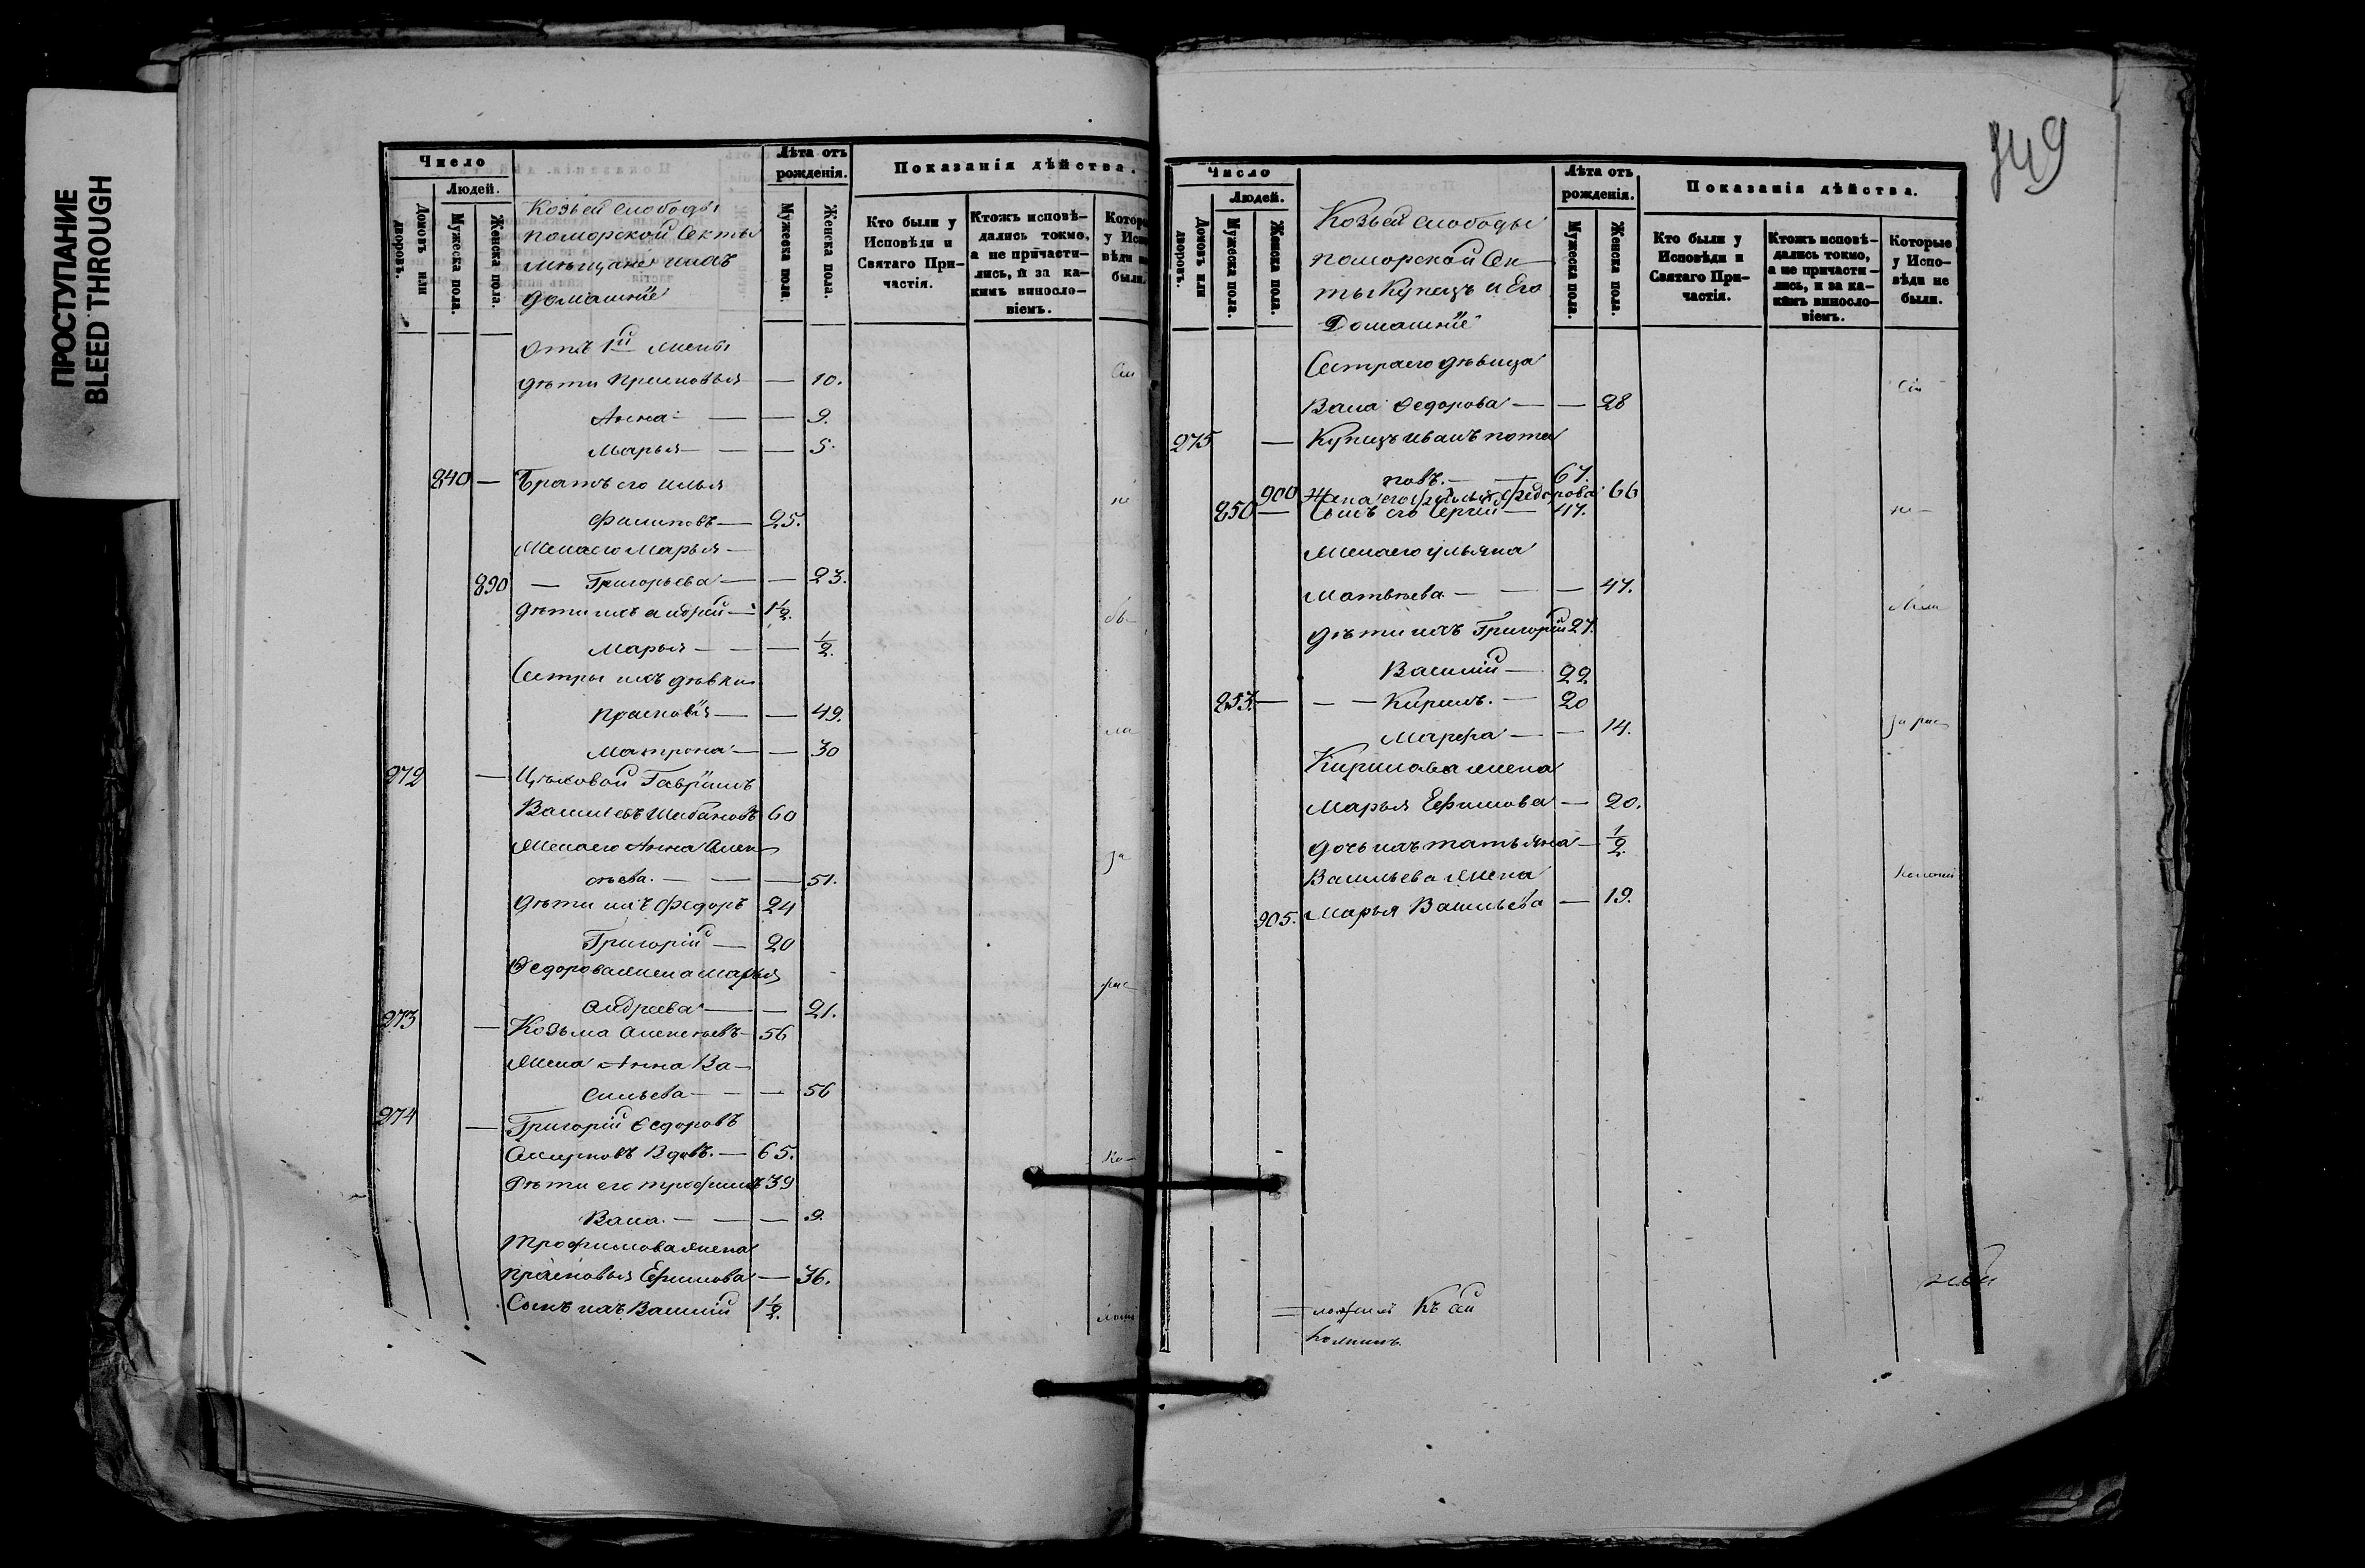 ПРОСТУПАНИЕ
BLEED THROUGH
Число
Людей.
Домовъ или дворовъ.
Мужеска пола.
Женска пола.
Козьей слободы
поморской Секты
мѣщане и ихъ
домашніе
Лѣта отъ рожденія.
Мужеска пола.
Женска пола.
Показанія дѣйства.
Кто были у Исповѣди и Святаго Причастія.
Ктожъ исповѣдались токмо, а не причастились, и за какимъ винословіемъ.
Отъ 1й жены
дѣти Прасковья — 10.
Анна — — 9.
Марья — — 5.
840 — Братъ его Илья
Филиповъ — 25.
Жена его Марья —
890 — Григорьева — — 23.
дѣти ихъ Андрей — 1½.
Марья — — — ½.
Сестры ихъ дѣвки
Прасковія — — 49.
Матрона — — 30
272 — Цѣховой Гавріилъ
Васильевъ 60
Жена его Анна Алек
сѣева. — — — 51.
Дѣти ихъ Федоръ 24
Григорій — 20
Ѳедорова жена Марья
Андреева — — 21.
273 — Козьма Алексѣевъ — 56
Жена Анна Ва—
сильева — — — 56
274 — Григорій Ѳедоровъ
Смирновъ Вдовъ. — 65.
Дѣти его Трофимъ 39
Васа. — — — 9.
Трофимова жена
Прасковья Ефимова — 36.
Сынъ ихъ Василій 1½.
за
рас
349
Число
Людей.
Домовъ или дворовъ.
Мужеска пола.
Женска пола.
Козьей слободы
поморской Сек—
ты Купецъ и Его
Домашніе
Лѣта отъ рожденія.
Мужеска пола.
Женска пола.
Показанія дѣйства.
Кто были у Исповѣди и Святаго Причастія.
Ктожъ исповѣдались токмо, а не причастились, и за какимъ винословіемъ.
Которые у Исповѣди не были.
Сестра его дѣвица
Васа Ѳедорова — — 28
275 — Купецъ Иванъ Пота
повъ. — — 67.
900 Жена его Федорова 66
850 — Сынъ его Сергій — 47.
Жена его Ульяна
Матвѣева — — — 47.
дѣти ихъ Григорій 27.
Василій — 22
853. — — — Кирилъ. — 20
Марфа — — 14.
Кирилова жена
Марья Ефимова — 20.
дочь ихъ Татьяна — ½.
Васильева жена
905. Марья Васильева — 19.
не —
за рас